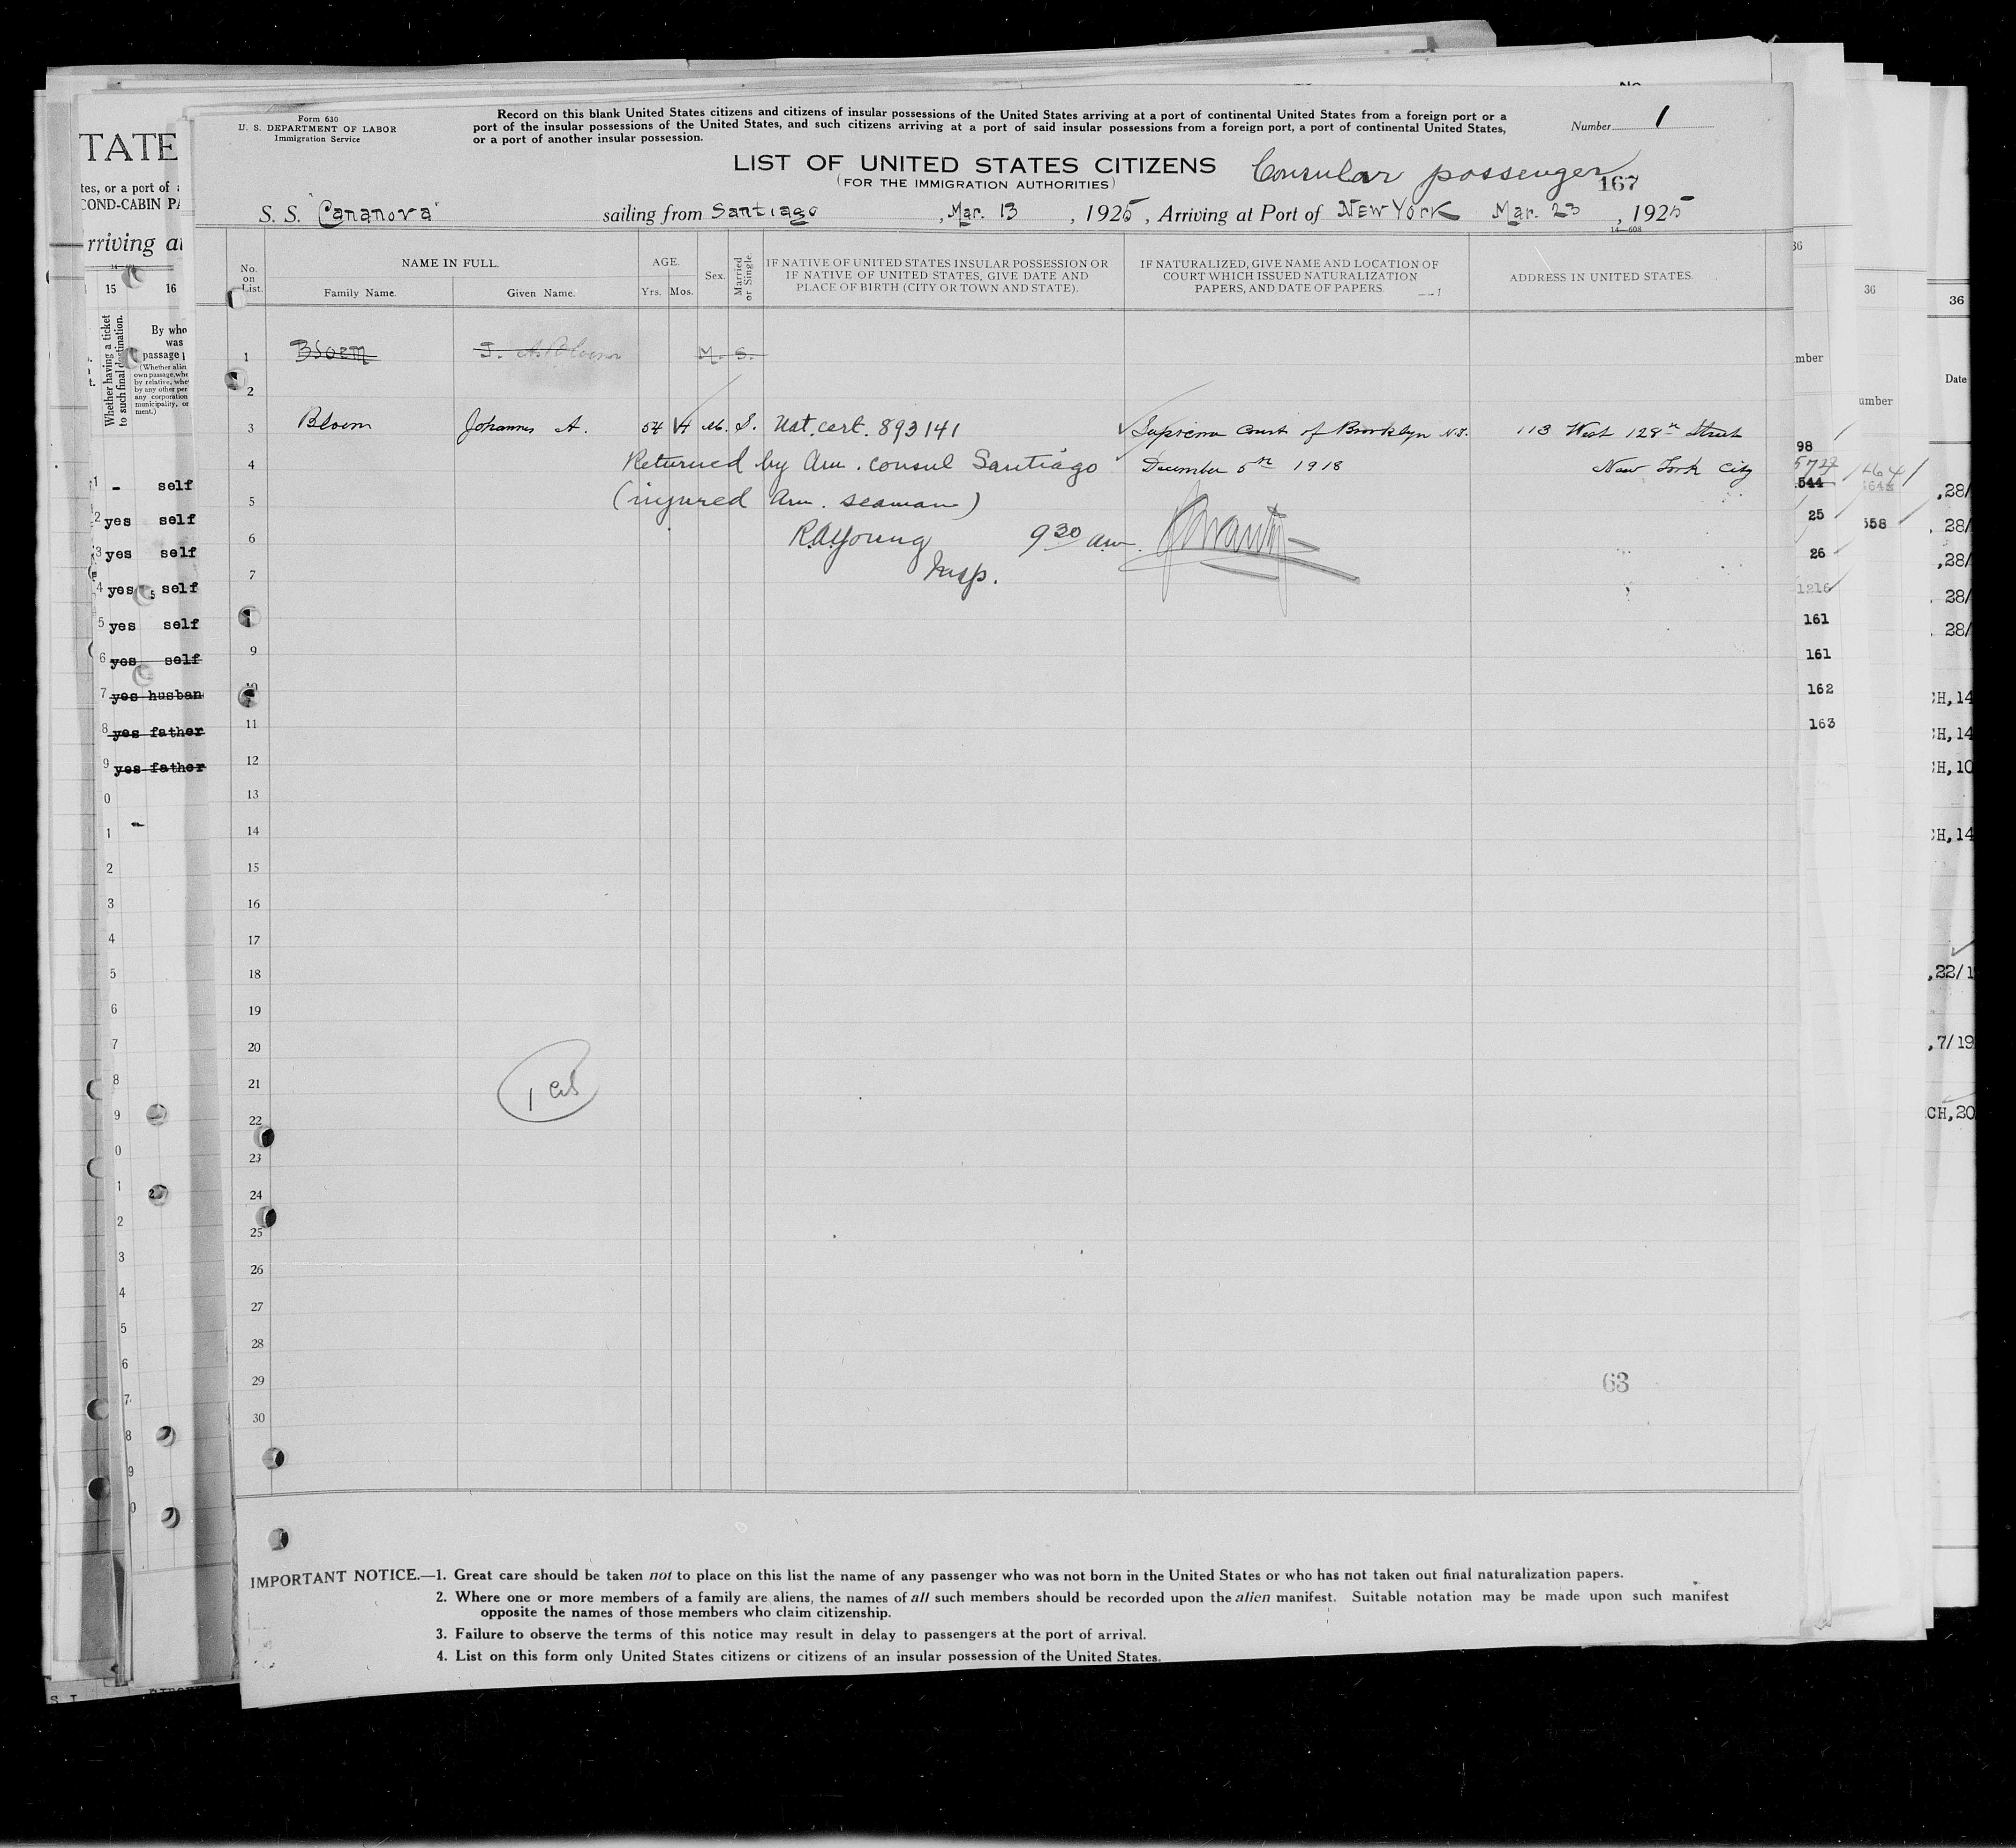 Form 630
U. S. DEPARTMENT OF LABOR
Immigration Service
Record on this blank United States citizens and citizens of insular possessions of the United States arriving at a port of continental United States from a foreign port or a
port of the insular possessions of the United States, and such citizens arriving at a port of said insular possessions from a foreign port, a port of continental United States,
or a port of another insular possession.
Number 1
LIST OF UNITED STATES CITIZENS Consular passenger
(FOR THE IMMIGRATION AUTHORITIES) 167
S. S. "Cananova" sailing from Santiago, Mar. 13, 1925, Arriving at Port of New York Mar. 23, 1925
14—608
No. on List.
NAME IN FULL.
Family Name. Given Name.
AGE.
Yrs. Mos.
Sex.
Married or Single.
IF NATIVE OF UNITED STATES INSULAR POSSESSION OR
IF NATIVE OF UNITED STATES, GIVE DATE AND
PLACE OF BIRTH (CITY OR TOWN AND STATE).
IF NATURALIZED, GIVE NAME AND LOCATION OF
COURT WHICH ISSUED NATURALIZATION
PAPERS, AND DATE OF PAPERS.
ADDRESS IN UNITED STATES.
1 Bloem J. M. S.
2
3 Bloem Johannes A. 54 M. S. Nat. cert. 893141 Supreme Court of Brooklyn N.Y. 113 West 128th Street
4 Returned by Am. consul Santiago December 5th 1918 New York City
5 (injured Am. seaman)
6 R.A. Young 9 30 am.
7 Insp.
9
10
11
12
13
14
15
16
17
18
19
20
21 1
22
23
24
25
26
27
28
29 63
30
IMPORTANT NOTICE.—1. Great care should be taken not to place on this list the name of any passenger who was not born in the United States or who has not taken out final naturalization papers.
2. Where one or more members of a family are aliens, the names of all such members should be recorded upon the alien manifest. Suitable notation may be made upon such manifest
opposite the names of those members who claim citizenship.
3. Failure to observe the terms of this notice may result in delay to passengers at the port of arrival.
4. List on this form only United States citizens or citizens of an insular possession of the United States.
TATE
tes, or a port of
COND-CABIN PA
rriving at
15 16
Whether having a ticket
to such final destination.
By who
was
passage
1 - self
2 yes self
3 yes self
4 yes self
5 yes self
6 yes self
7 yes husban
8 yes father
9 yes father
36
mber
98
544
25
26
1216
161
161
162
163
36
umber
558
36
Date
,28/
,28/
,28/
,28/
,28/
CH,14
CH,14
CH,10
CH,14
,22/1
,7/19
CH,20